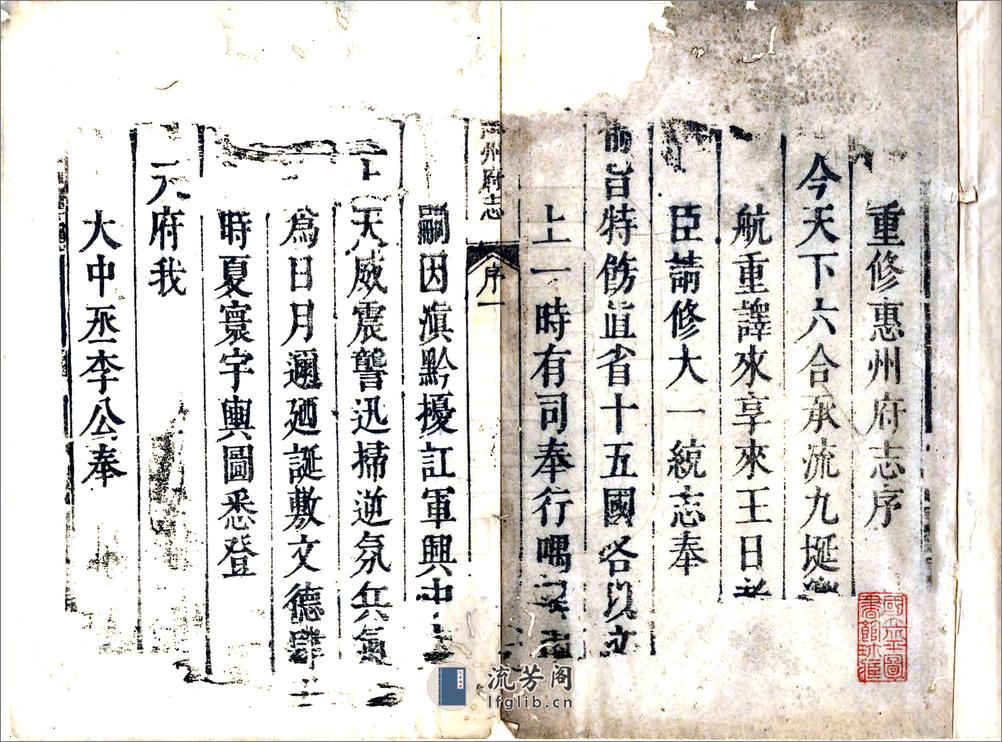 重修惠州府志序
今天下六合承流九埏
航重譯來享來王日者
臣請修大一統志奉
前旨特飭直省十五國各以
上一時有司奉行喁
州府志
序一
嗣因滇黔擾訌軍興中
上
天威震讋迅掃逆氛兵氣
為日月邇廼誕敷文德肆
時夏寰宇輿圖悉登
天府我
大中丞李公奉
流芳阁
lfglib.cn